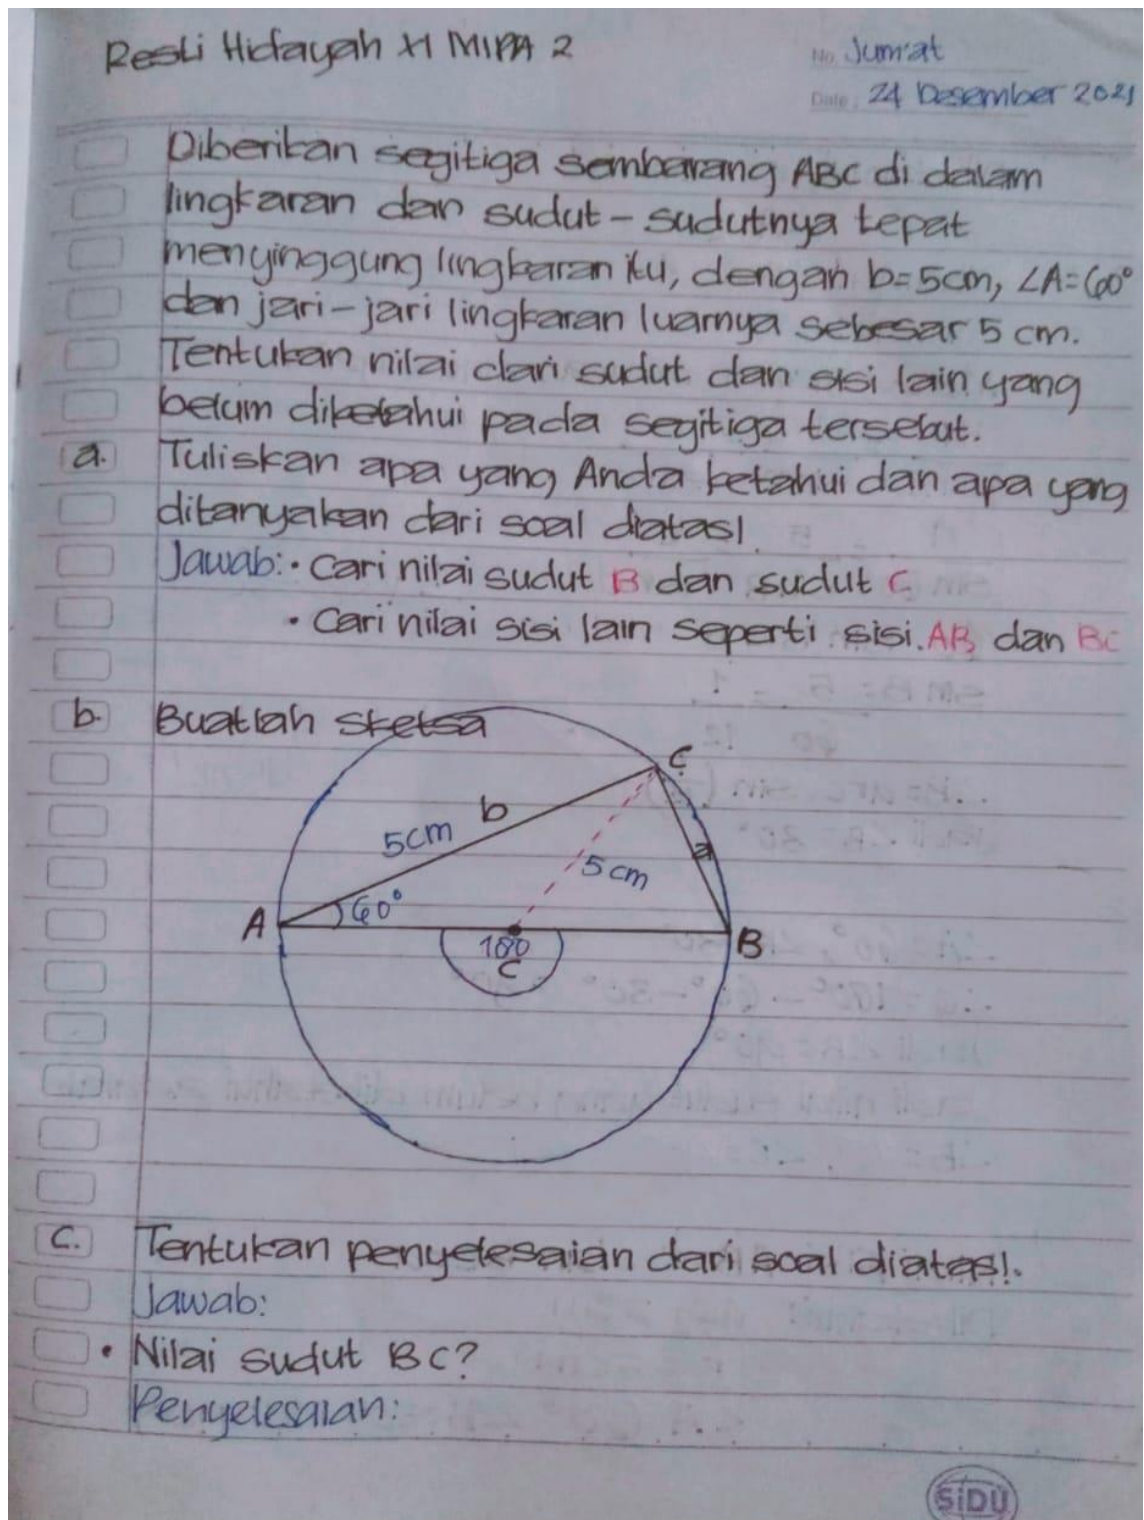 Resti Hidayah XI MIPA 2
No. Jum'at
Date: 24 Desember 2021
Diberikan segitiga sembarang ABC di dalam
lingkaran dan sudut-sudutnya tepat
menyinggung lingkaran itu, dengan b=5cm, ∠A=60°
dan jari-jari lingkaran luarnya sebesar 5 cm.
Tentukan nilai dari sudut dan sisi lain yang
belum diketahui pada segitiga tersebut.
a. Tuliskan apa yang Anda ketahui dan apa yang
ditanyakan dari soal diatas!
Jawab: • Cari nilai sudut B dan sudut C
• Cari nilai sisi lain seperti sisi AB dan BC
b. Buatlah sketsa
C
b
5cm
a
5 cm
A
60°
B
180
C
c. Tentukan penyelesaian dari soal diatas!.
Jawab:
• Nilai sudut BC?
Penyelesaian:
SiDU